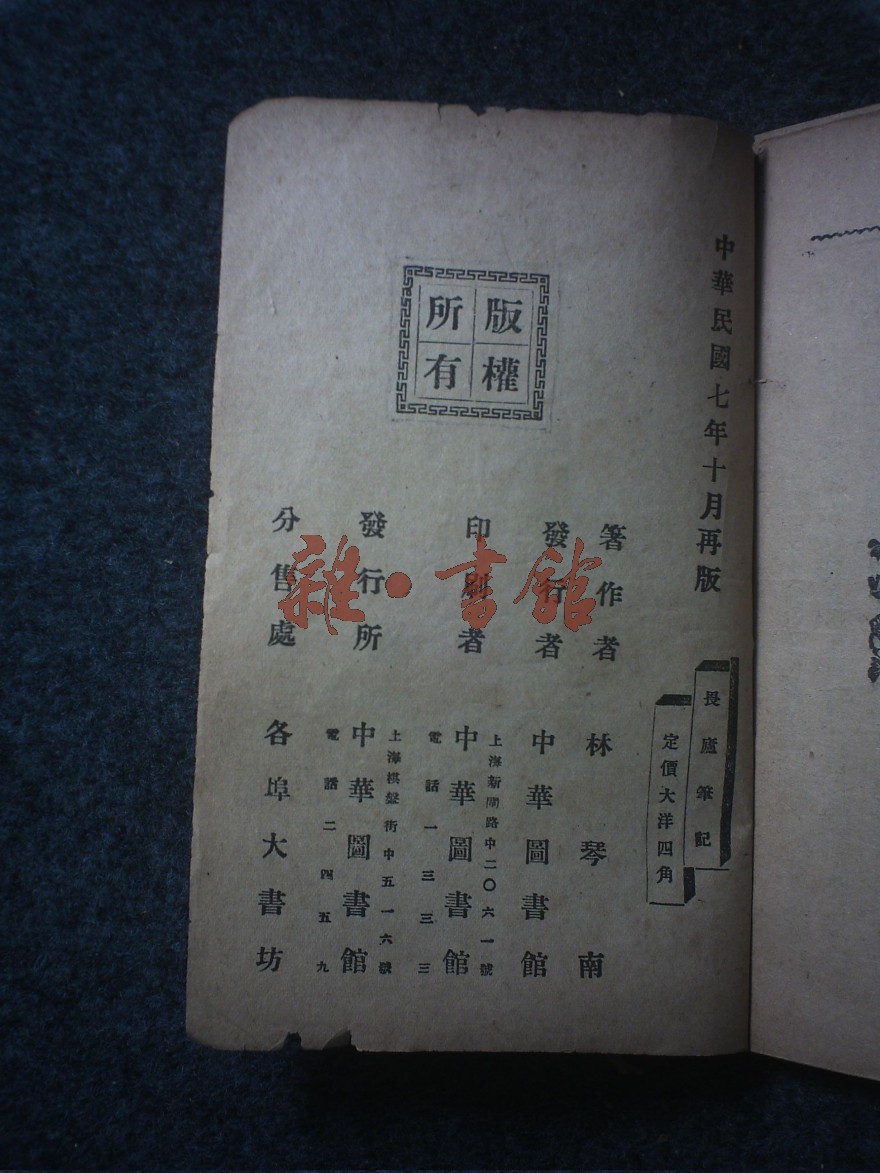 中華民國七年十月再版
版權
所有
畏廬筆記
定價大洋四角
箸作者 林琴南
發行者 中華圖書館
上海新閘路中二〇六一號
印刷者 中華圖書館
電話一三三三
上海棋盤街中五一六號
發行所 中華圖書館
電話二四五九
分售處 各埠大書坊
雜·書館